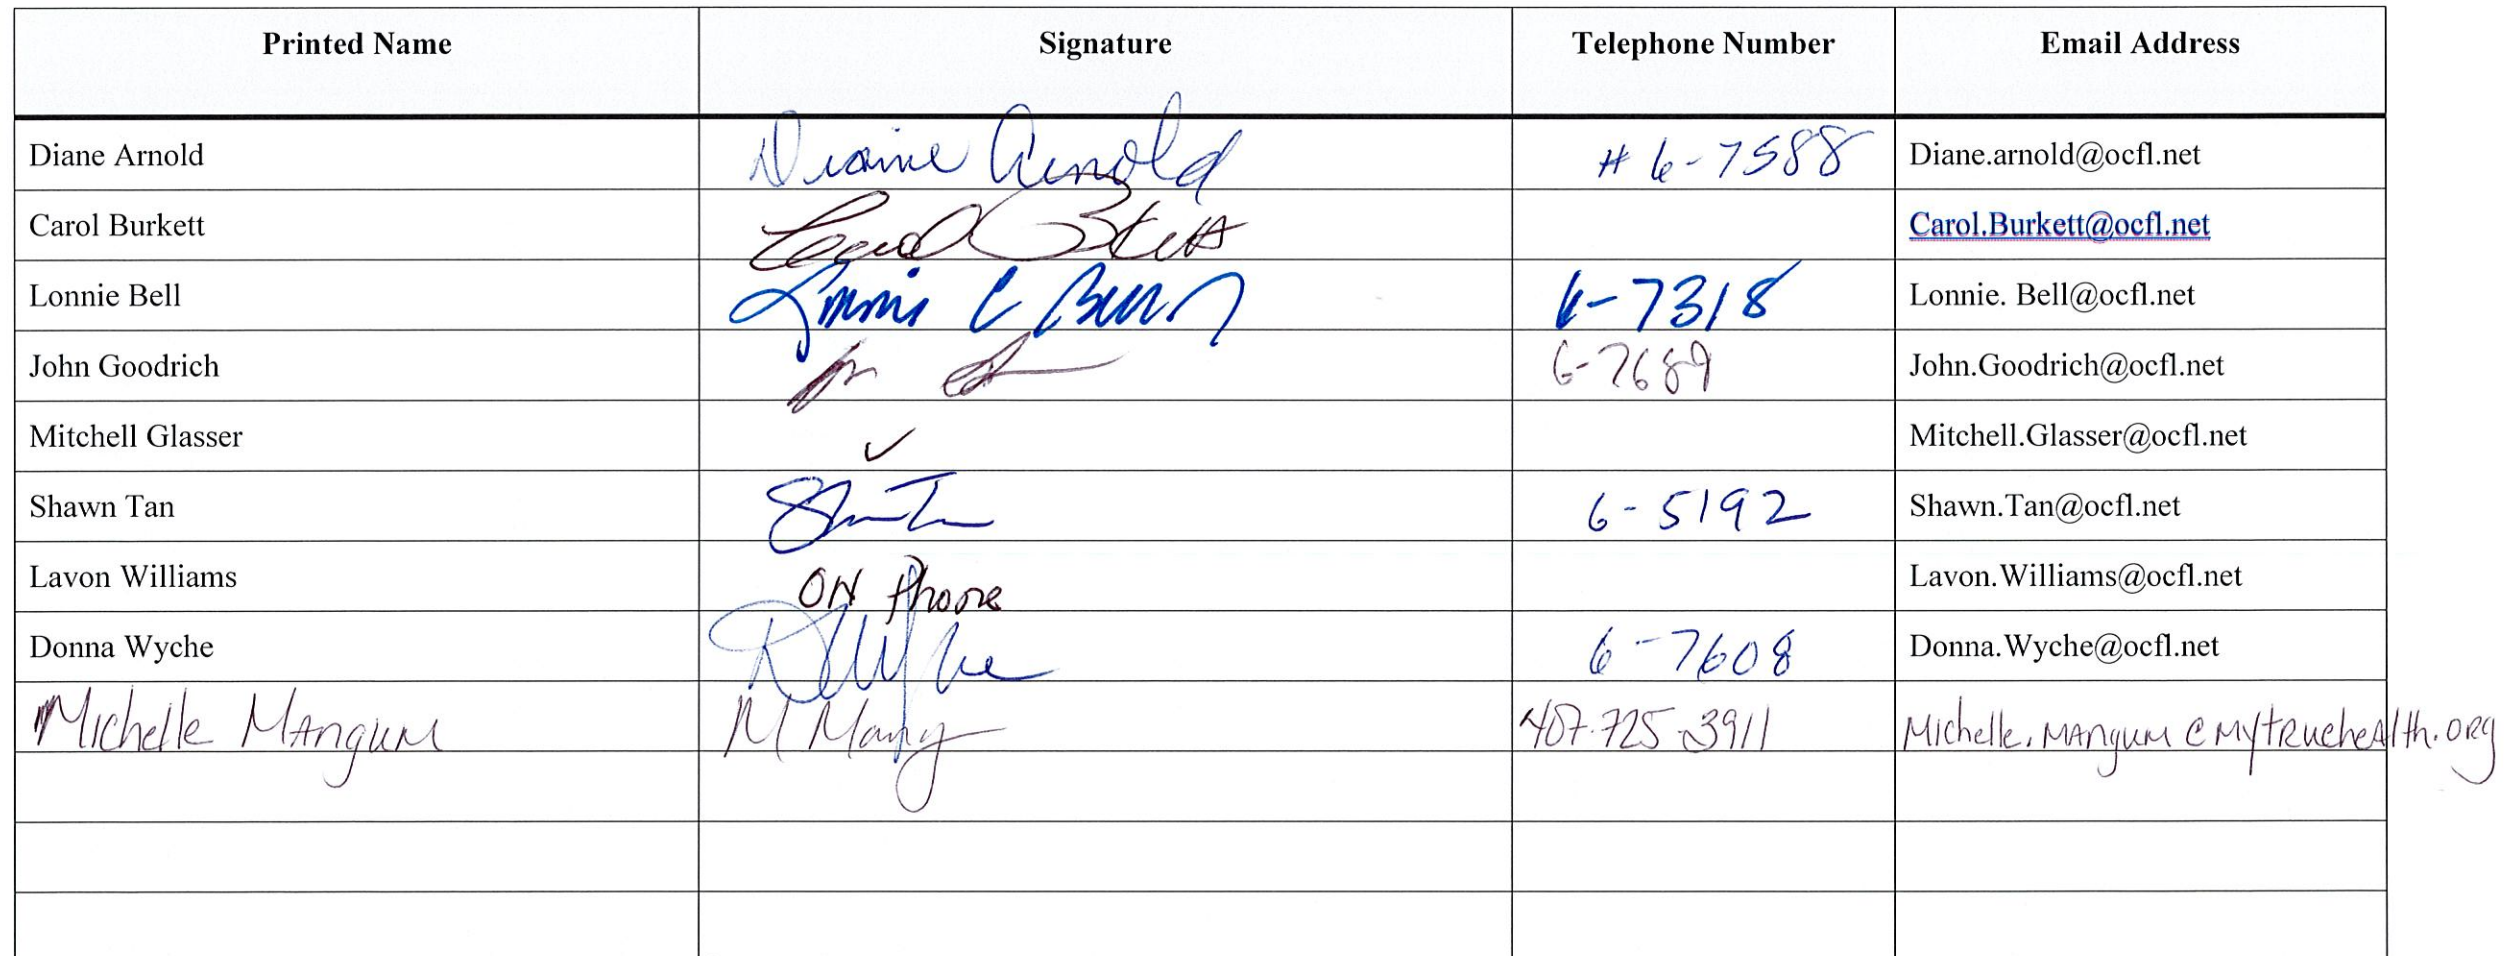 Printed Name Signature Telephone Number Email Address
Diane Arnold Diane Arnold # 6-7588 Diane.arnold@ocfl.net
Carol Burkett Carol Burkett Carol.Burkett@ocfl.net
Lonnie Bell Lonnie C Bell 6-7318 Lonnie. Bell@ocfl.net
John Goodrich 6-7689 John.Goodrich@ocfl.net
Mitchell Glasser ✓ Mitchell.Glasser@ocfl.net
Shawn Tan 6-5192 Shawn.Tan@ocfl.net
Lavon Williams ON Phone Lavon.Williams@ocfl.net
Donna Wyche 6-7608 Donna.Wyche@ocfl.net
Michelle Mangum M Mang 407.725-3911 Michelle.Mangum@mytruehealth.org